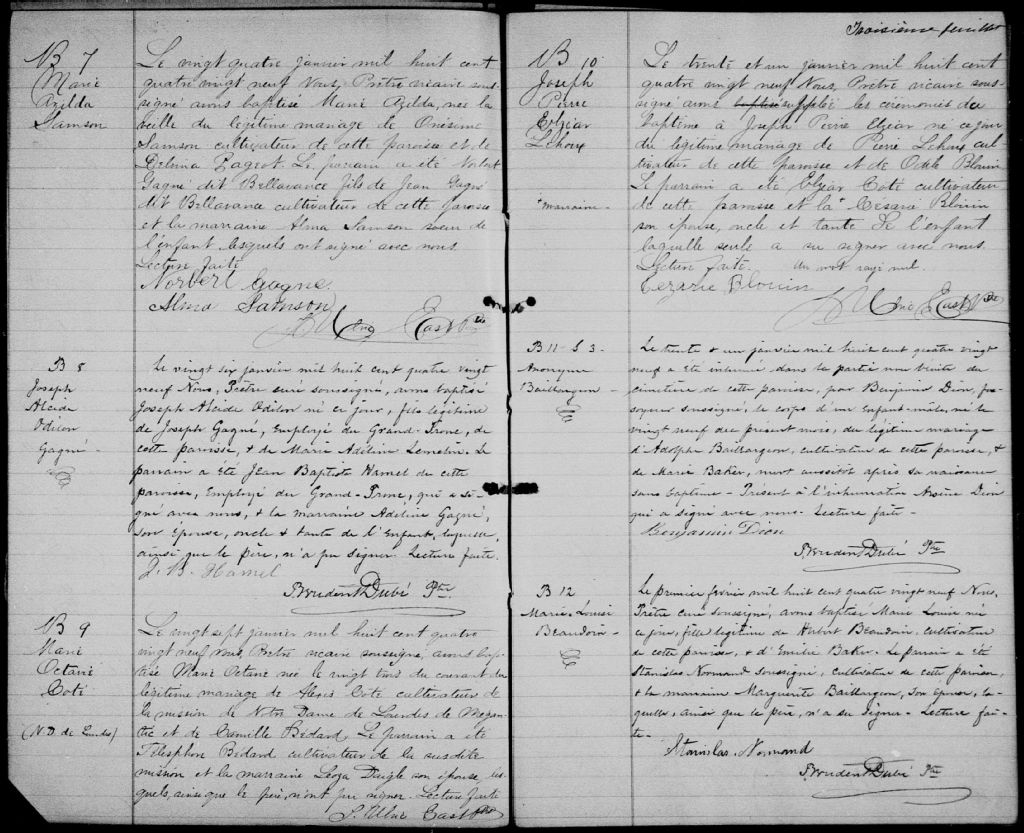 B 7
Marie
Azilda
Samson
Le vingt quatre janvier mil huit cent
quatre vingt neuf Nous, Prêtre vicaire sous-
signé avons baptisé Marie Azilda, née la
veille du légitime mariage de Onésime
Samson cultivateur de cette paroisse et de
Delvina Pageot. Le parrain a été Norbert
Gagné dit Bellavance fils de Jean Gagné
dit Bellavance cultivateur de cette paroisse
et la marraine Alma Samson soeur de
l'enfant lesquels ont signé avec nous.
Lecture faite
Norbert Gagne.
Alma Samson
East Ptre
B 8
Joseph
Alcide
Odilon
Gagné
Le vingt six janvier mil huit cent quatre vingt
neuf Nous, Prêtre curé soussigné, avons baptisé
Joseph Alcide Odilon né ce jour, fils légitime
de Joseph Gagné, Employé du Grand-Tronc, de
cette paroisse, & de Marie Adéline Lemelin. Le
parrain a été Jean Baptiste Hamel de cette
paroisse, Employé du Grand-Tronc, qui a si-
gné avec nous, & la marraine Adeline Gagné,
son Epouse, oncle & tante de l'Enfant, laquelle,
ainsi que le père, n'a pu signer. Lecture faite.
J. B. Hamel
Prudent Dubé Ptre
B 9
Marie
Octavie
Coté
(N.D. de Lourdes)
Le vingt sept janvier mil huit cent quatre
vingt neuf Nous Prêtre vicaire soussigné, avons bap-
tisé Marie Octavie née le vingt trois du courant du
légitime mariage de Alexis Coté cultivateur de
la mission de Notre Dame de Lourdes de Megan-
tic et de Camille Bédard. Le parrain a été
Télesphore Bédard cultivateur de la susdite
mission et la marraine Daigle son épouse, les-
quels, ainsi que le père, n'ont pu signer. Lecture faite
East Ptre
Troisième feuillet
B 10
Joseph
Pierre
Elzéar
Leheux
"marraine"
Le trente et un janvier mil huit cent
quatre vingt neuf Nous, Prêtre vicaire sous-
signé avons baptisé suppléé les cérémonies du
baptême à Joseph Pierre Elzéar né ce jour
du légitime mariage de Pierre Leheux cul-
tivateur de cette paroisse et de Odile Blouin
Le parrain a été Elzéar Coté cultivateur
de cette paroisse et la " Césarie Blouin
son épouse, oncle et tante de l'enfant
laquelle seule a su signer avec nous.
Lecture faite. Un mot rayé nul.
Cezarie Blouin
East Ptre
B 11 - S 3.
Anonyme
Baillargeon
Le trente & un janvier mil huit cent quatre vingt
neuf a été inhumé dans la partie non bénite du
cimetière de cette paroisse, par Benjamin Dion, fos-
soyeur soussigné, le corps d'un Enfant-mâle, né le
vingt neuf du présent mois, du légitime mariage
d'Adolphe Baillargeon, cultivateur de cette paroisse, &
de Marie Baker, mort aussitôt après sa naissance
sans baptême - Présent à l'inhumation Arsène Dion
qui a signé avec nous. Lecture faite -
Benjamin Dion
Prudent Dubé Ptre
B 12
Marie-Louise
Beaudoin -
Le premier février mil huit cent quatre vingt neuf Nous,
Prêtre curé soussigné, avons baptisé Marie Louise née
ce jour, fille légitime de Hubert Beaudoin, cultivateur
de cette paroisse, & d'Emilie Baker. Le parrain a été
Stanislas Normand soussigné, cultivateur de cette paroisse,
& la marraine Marguerite Baillargeon, son Epouse, la-
quelle, ainsi que le père, n'a su signer - Lecture fai-
te -
Stanislas Normand
Prudent Dubé Ptre